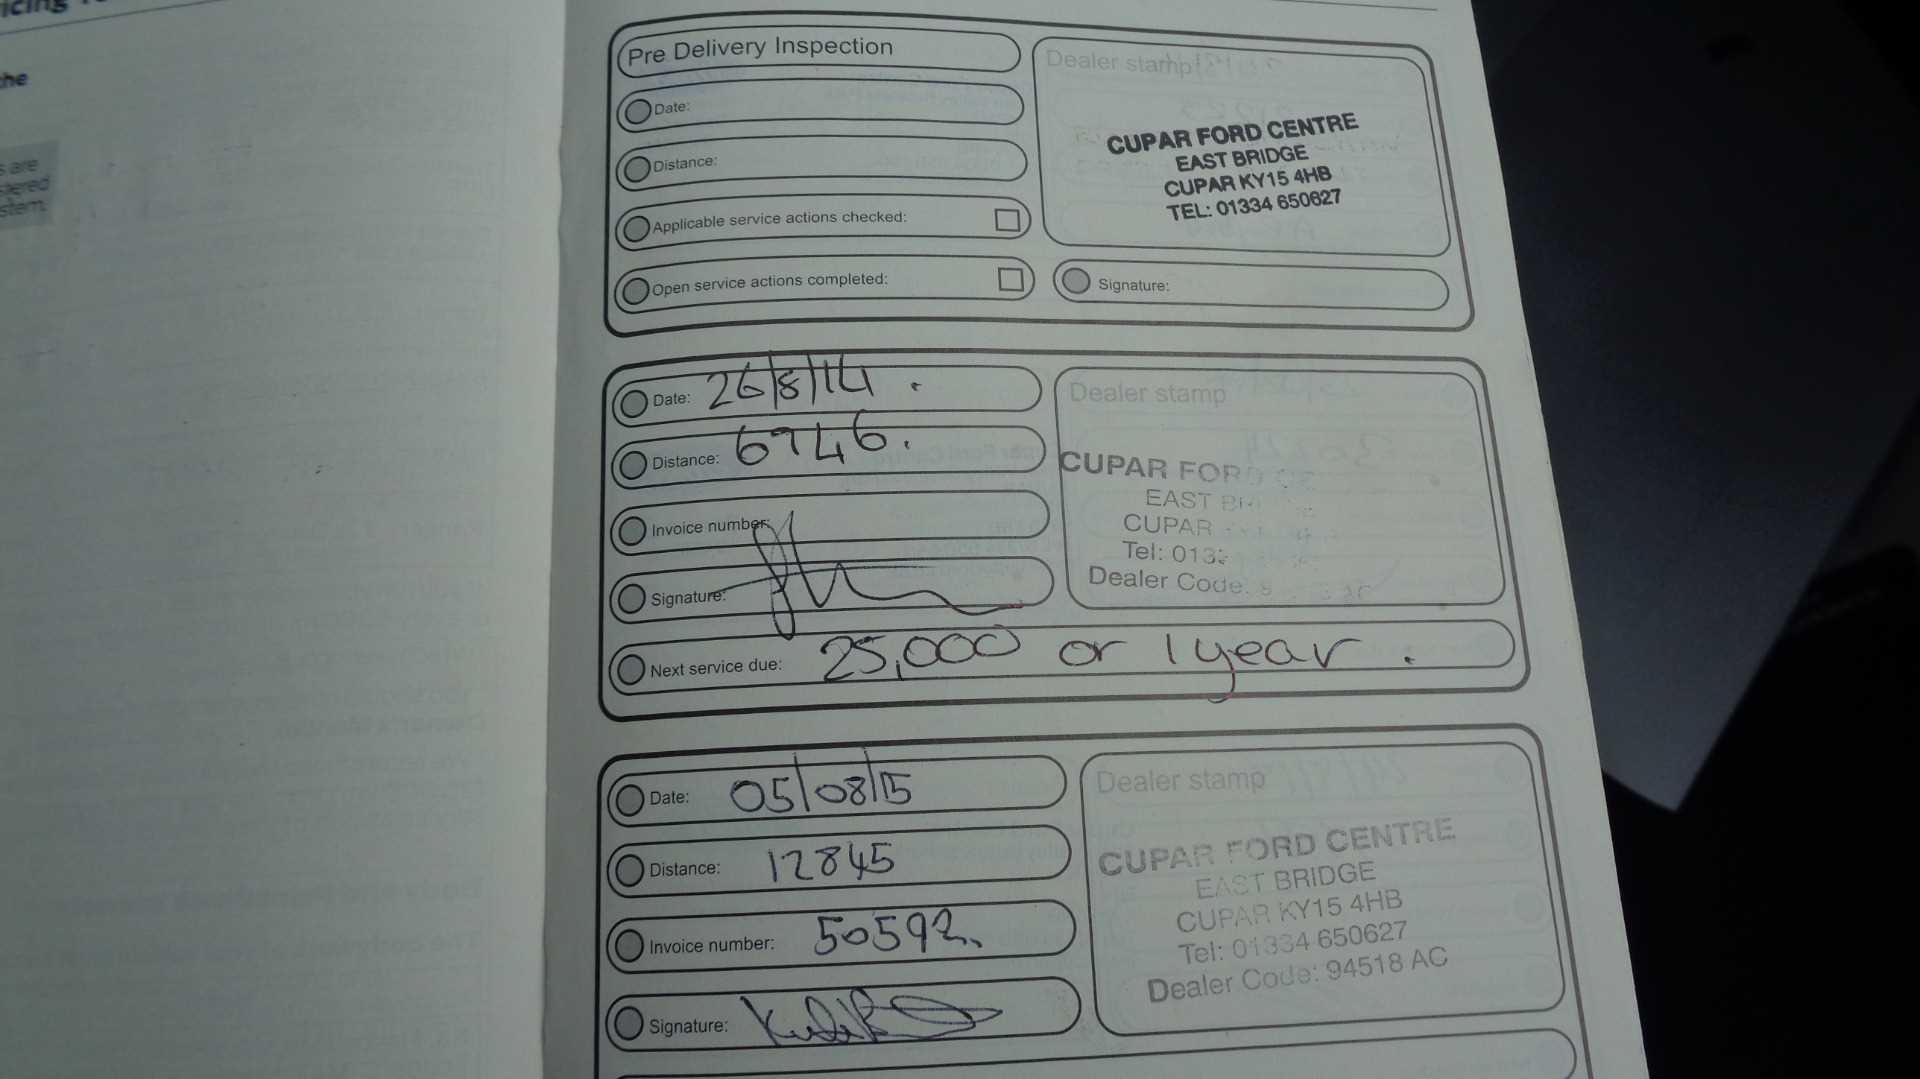 the
s are
stered
stem.
Pre Delivery Inspection
Date:
Distance:
Applicable service actions checked:
Open service actions completed:
Dealer stamp
CUPAR FORD CENTRE
EAST BRIDGE
CUPAR KY15 4HB
TEL: 01334 650627
Signature:
Date: 26/8/14 .
Distance: 6746.
Invoice number:
Signature:
Next service due: 25,000 or 1 year .
Dealer stamp
CUPAR FORD CE
EAST BRI
CUPAR
Tel: 0133
Dealer Code:
Date: 05/08/15
Distance: 12845
Invoice number: 50592.
Signature:
Dealer stamp
CUPAR FORD CENTRE
EAST BRIDGE
CUPAR KY15 4HB
Tel: 01334 650627
Dealer Code: 94518 AC